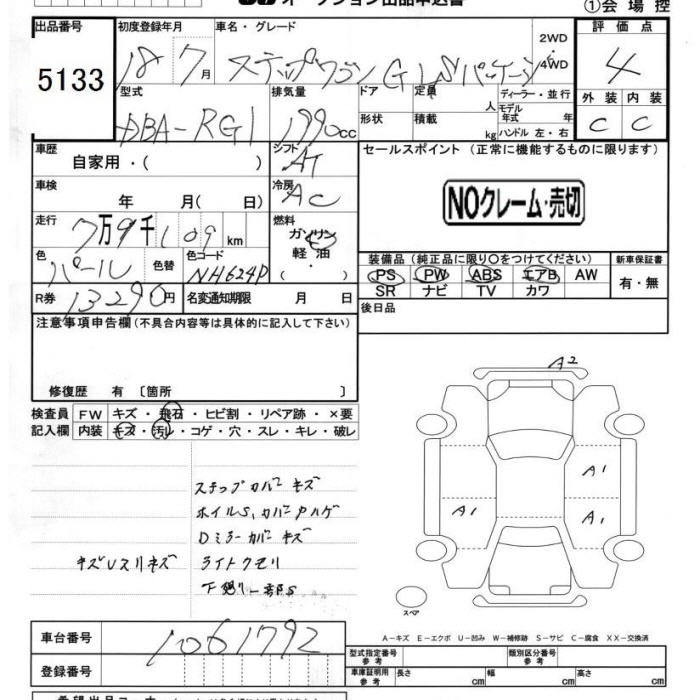 オークション出品申込書
①会場控
出品番号 初度登録年月 車名・グレード 2WD・4WD 評価点
5133 18 7月 ステップワゴン G LSパッケージ 4
型式 排気量 ドア 定員 人 ディーラー・並行 モデル 年式 年 外装 内装
DBA-RG1 1990cc 形状 積載 kg ハンドル 左・右 C C
車歴 自家用・( ) シフト AT セールスポイント (正常に機能するものに限ります)
車検 年 月( 日) 冷房 AC NOクレーム・売切
走行 7万9千109km 燃料 ガソリン 軽油 ・
装備品(純正品に限り○をつけてください) 新車保証書
色 パール 色替 色コード NH624P PS PW ABS エアB AW 有・無
SR ナビ TV カワ
R券 13290円 名変通知期限 月 日 後日品
注意事項申告欄(不具合内容等は具体的に記入して下さい)
修復歴 有 〔箇所 〕
A2
検査員 FW キズ・飛石・ヒビ割・リペア跡・×要
記入欄 内装 キズ・汚レ・コゲ・穴・スレ・キレ・破レ
A1
A1 A1
ステップカバーキズ
ホイルS、カバーPハゲ
Dミラーカバーキズ
キズUスリキズ ライトクモリ
下廻り一部S
スペア
A-キズ E-エクボ U-凹み W-補修跡 S-サビ C-腐食 XX-交換済
車台番号 1061792
型式指定番号 参考 類別区分番号 参考
登録番号 車庫証明用 参考 長さ cm 幅 cm 高さ cm